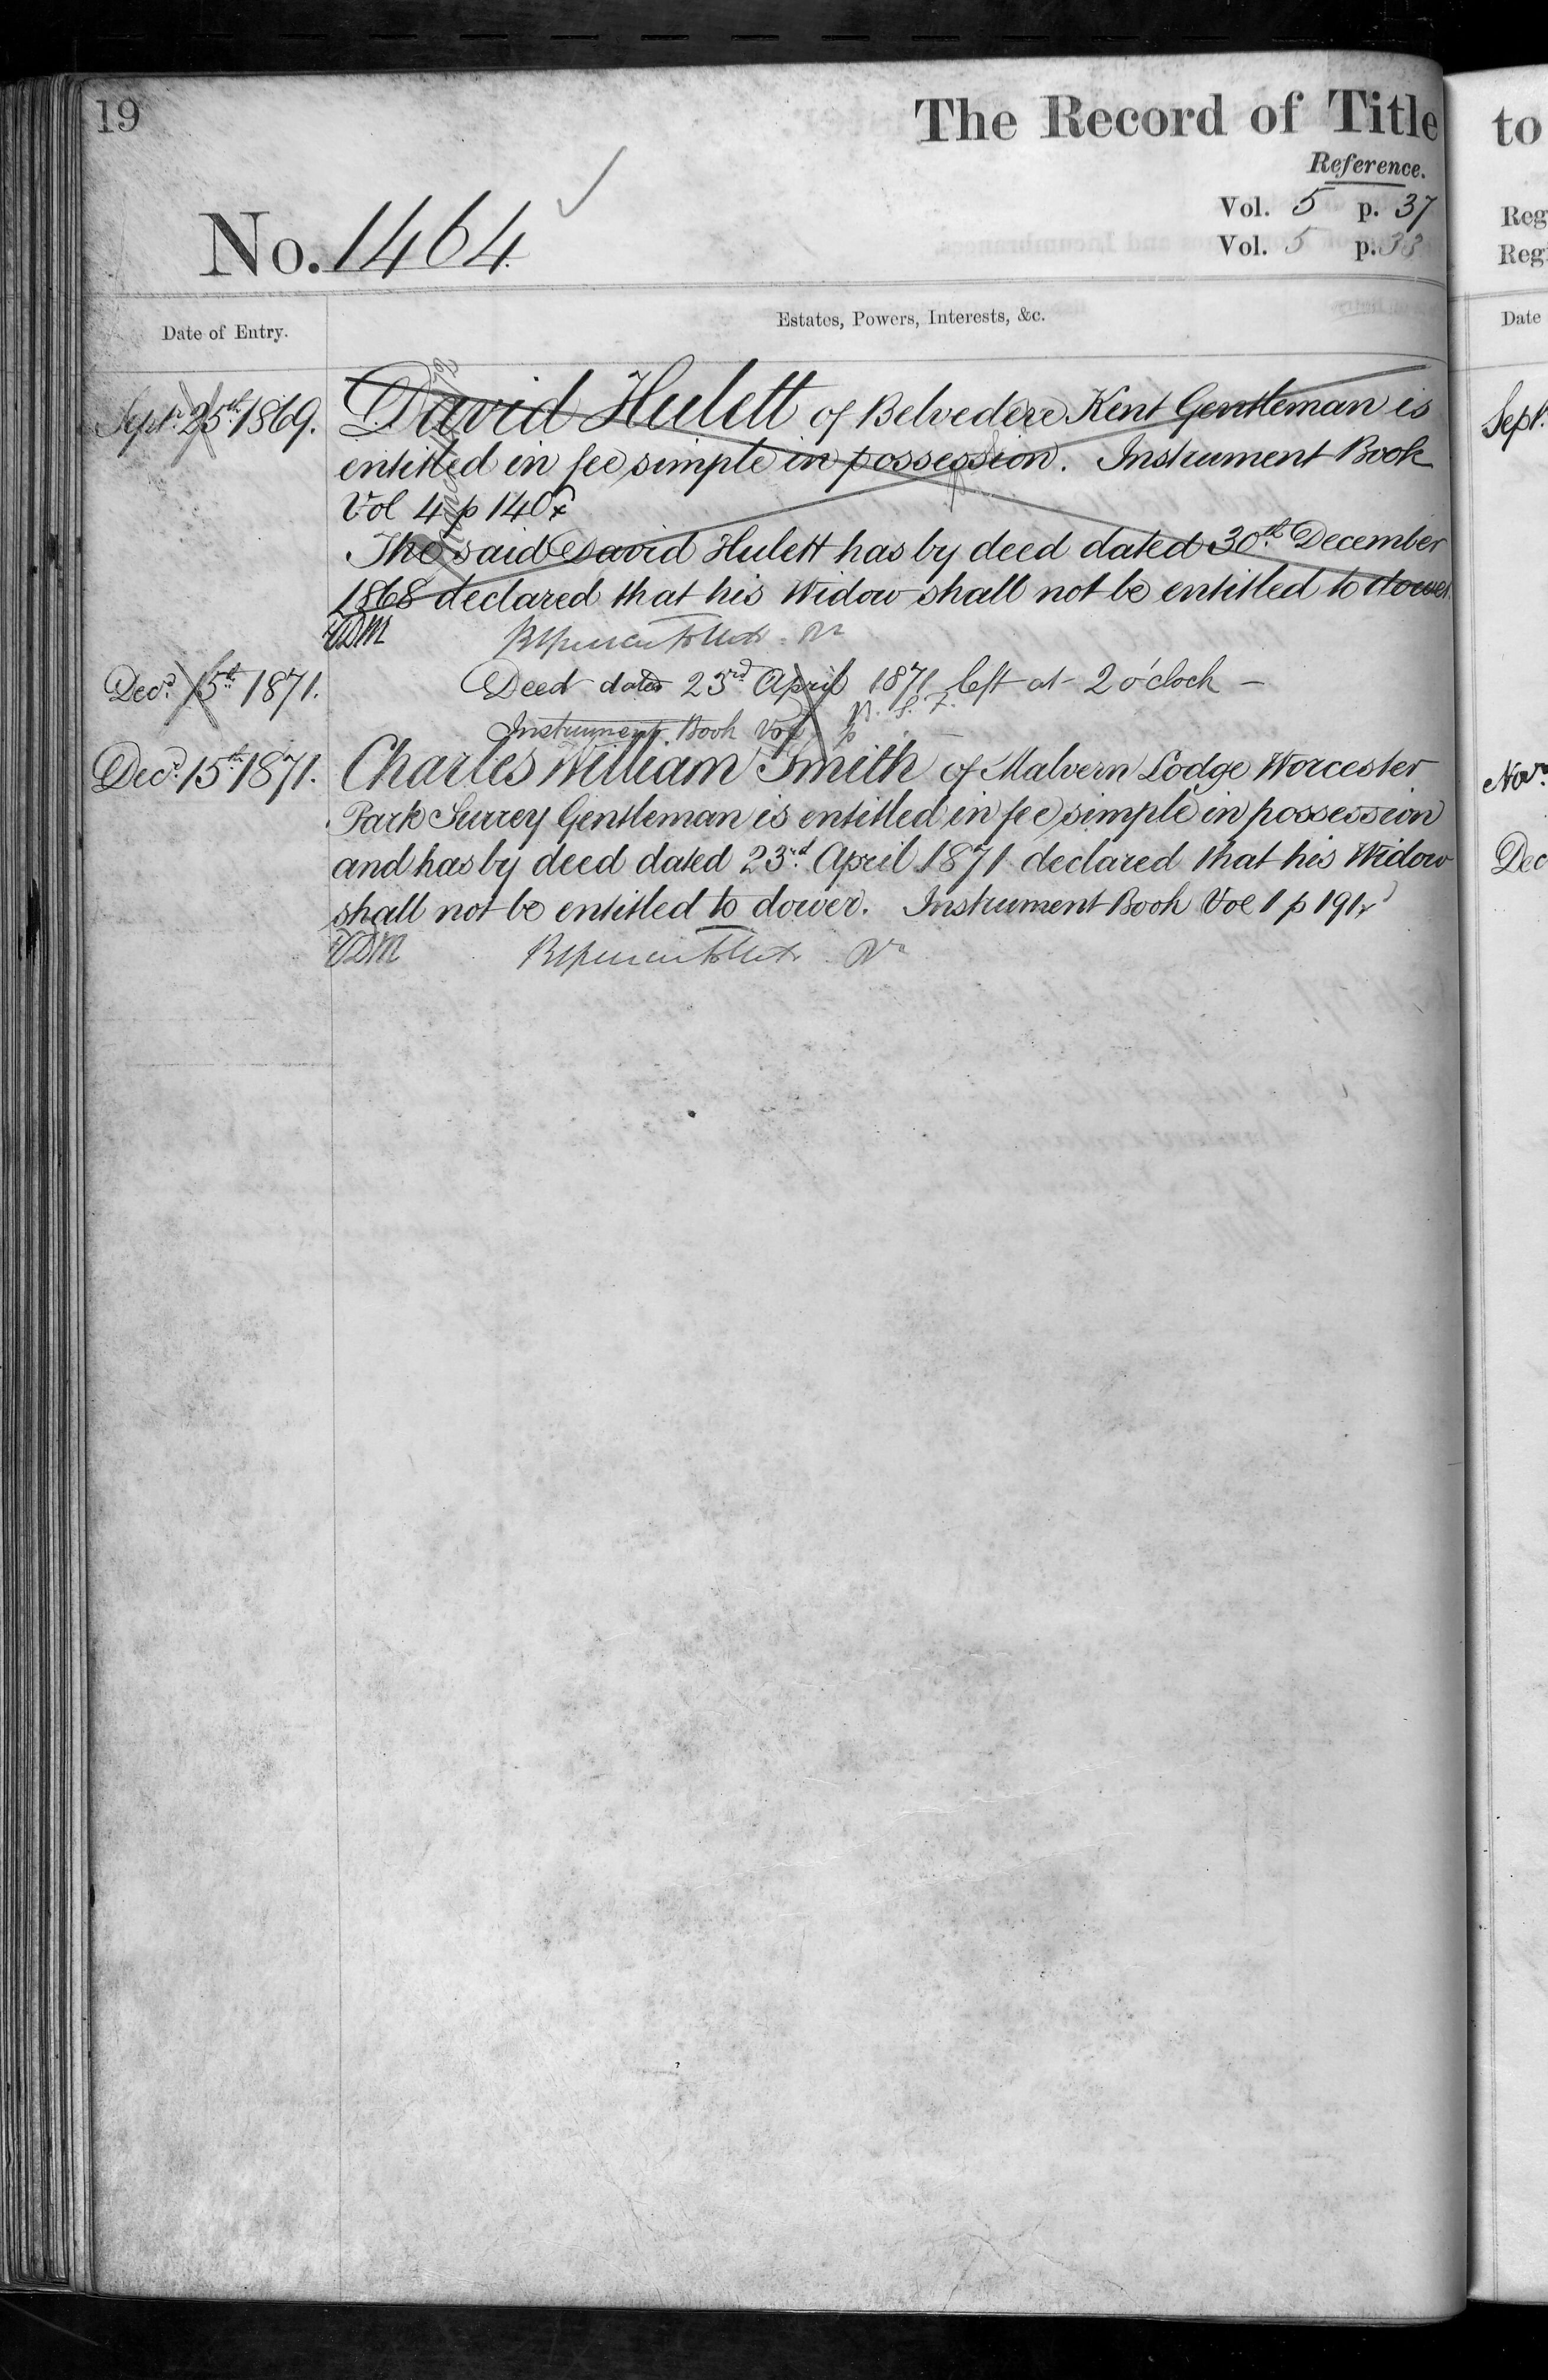 19
The Record of Title
Reference.
Vol. 5 p. 37
Vol. 5 p. 33
No. 1464
Date of Entry.
Estates, Powers, Interests, &c.
Sept. 25th 1869.
David Hulett of Belvedere Kent Gentleman is
entitled in fee simple in possession. Instrument Book
Vol 4 p 140
The said David Hulett has by deed dated 30th December
1868 declared that his Widow shall not be entitled to dower.
Decr. 15th 1871.
Deed dated 23rd April 1871 left at 2 o'clock —
Instrument Book Vol p
Decr. 15th 1871.
Charles William Smith of Malvern Lodge Worcester
Park Surrey Gentleman is entitled in fee simple in possession
and has by deed dated 23rd April 1871 declared that his Widow
shall not be entitled to dower. Instrument Book Vol 1 p 191
to
Reg
Reg
Date
Sept.
Novr.
Dec